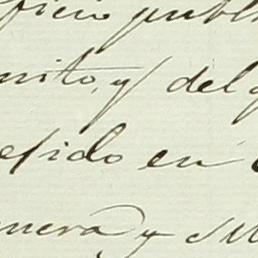 ficio publ
nito, y del
efido en
nera y